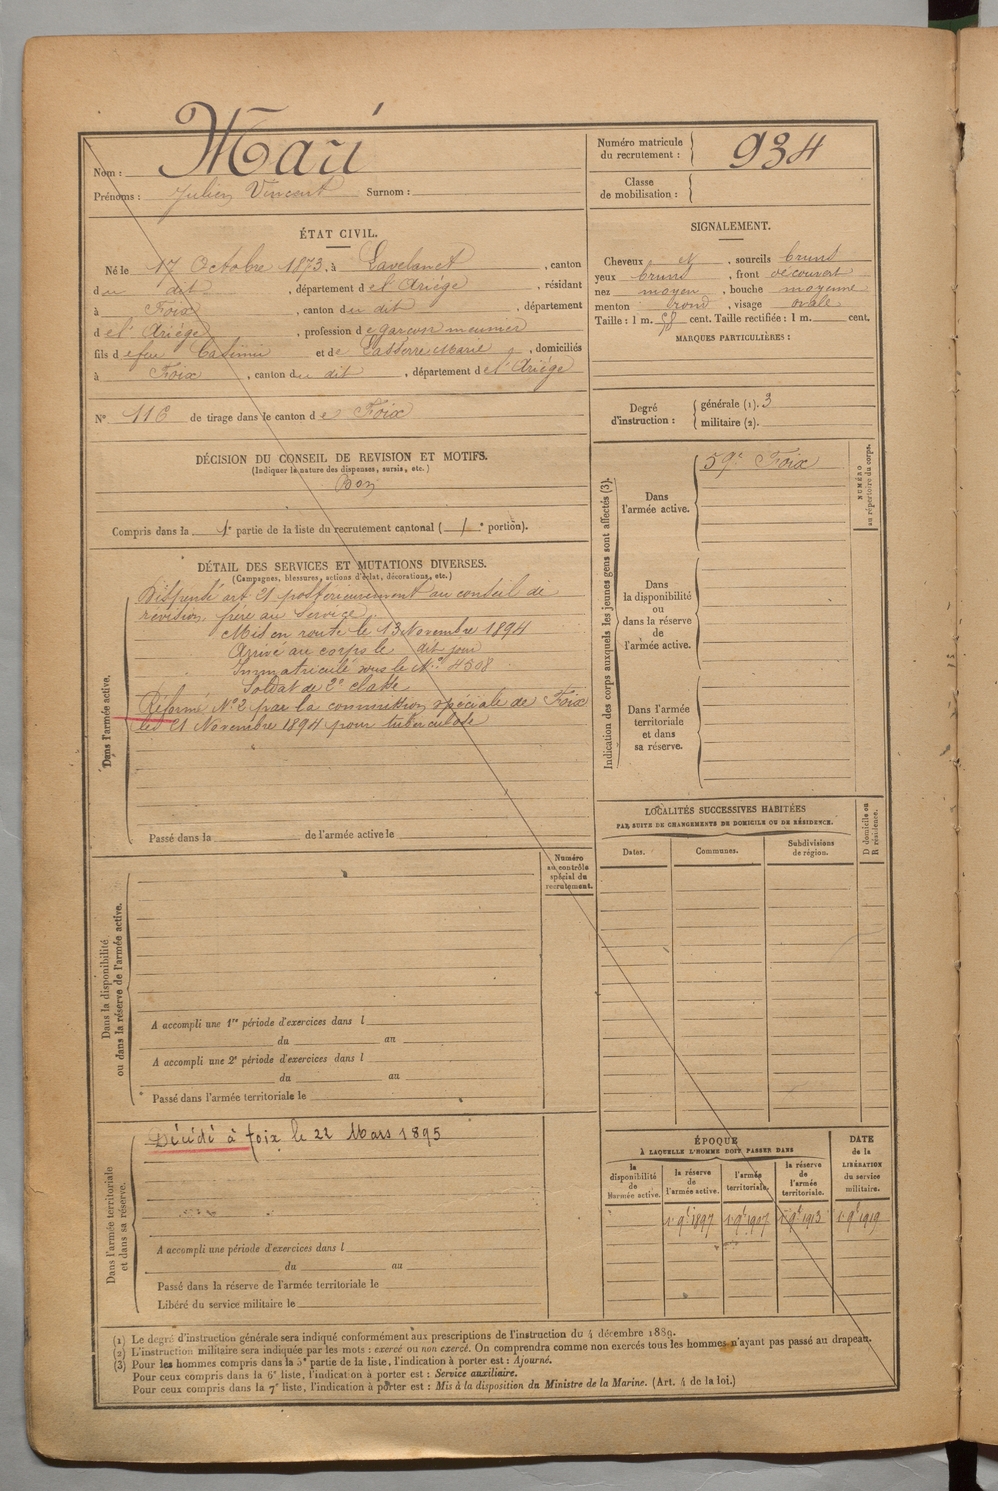 Nom : Marí
Prénoms : Julien Vincent Surnom :
Numéro matricule du recrutement : 934
Classe de mobilisation :
ÉTAT CIVIL.
Né le 17 Octobre 1873, à Lavelanet, canton
du dit, département de l'Ariège, résidant
à Foix, canton du dit, département
de l'Ariège, profession de garçon meunier
fils de feu Casimir et de Lasserre Marie, domiciliés
à Foix, canton du dit, département de l'Ariège
N° 116 de tirage dans le canton de Foix
DÉCISION DU CONSEIL DE REVISION ET MOTIFS.
(Indiquer la nature des dispenses, sursis, etc.)
Bon
Compris dans la 1e partie de la liste du recrutement cantonal ( 1e portion).
SIGNALEMENT.
Cheveux N, sourcils bruns
yeux bruns, front découvert
nez moyen, bouche moyenne
menton rond, visage ovale
Taille : 1 m. 58 cent. Taille rectifiée : 1 m. cent.
MARQUES PARTICULIÈRES :
Degré d'instruction :
générale (1). 3
militaire (2).
DÉTAIL DES SERVICES ET MUTATIONS DIVERSES.
(Campagnes, blessures, actions d'éclat, décorations, etc.)
Dans l'armée active.
Dispensé art 21 postérieurement au conseil de
révision, frère au service.
Mis en route le 13 Novembre 1894
Arrivé au corps le dit jour
Immatriculé sous le N° 4308
Soldat de 2e classe
Réformé N° 2 par la commission spéciale de Foix
le 21 Novembre 1894 pour tuberculose
Passé dans la de l'armée active le
Indication des corps auxquels les jeunes gens sont affectés (3).
NUMÉRO au répertoire du corps.
Dans l'armée active.
59e Foix
Dans la disponibilité ou dans la réserve de l'armée active.
Dans l'armée territoriale et dans sa réserve.
LOCALITÉS SUCCESSIVES HABITÉES
PAR SUITE DE CHANGEMENTS DE DOMICILE OU DE RÉSIDENCE.
Dates.
Communes.
Subdivisions de région.
D domicile ou R résidence.
Numéro au contrôle spécial du recrutement.
Dans la disponibilité ou dans la réserve de l'armée active.
A accompli une 1re période d'exercices dans l
du au
A accompli une 2e période d'exercices dans l
du au
Passé dans l'armée territoriale le
Dans l'armée territoriale et dans sa réserve.
Décédé à Foix le 22 Mars 1895
A accompli une période d'exercices dans l
du au
Passé dans la réserve de l'armée territoriale le
Libéré du service militaire le
ÉPOQUE
À LAQUELLE L'HOMME DOIT PASSER DANS
la disponibilité de l'armée active.
la réserve de l'armée active.
l'armée territoriale.
la réserve de l'armée territoriale.
DATE de la LIBÉRATION du service militaire.
1er 9bre 1897
1er 9bre 1907
1er 9bre 1913
1er 9bre 1919
(1) Le degré d'instruction générale sera indiqué conformément aux prescriptions de l'instruction du 4 décembre 1889.
(2) L'instruction militaire sera indiquée par les mots : exercé ou non exercé. On comprendra comme non exercés tous les hommes n'ayant pas passé au drapeau.
(3) Pour les hommes compris dans la 5e partie de la liste, l'indication à porter est : Ajourné.
Pour ceux compris dans la 6e liste, l'indication à porter est : Service auxiliaire.
Pour ceux compris dans la 7e liste, l'indication à porter est : Mis à la disposition du Ministre de la Marine. (Art. 4 de la loi.)